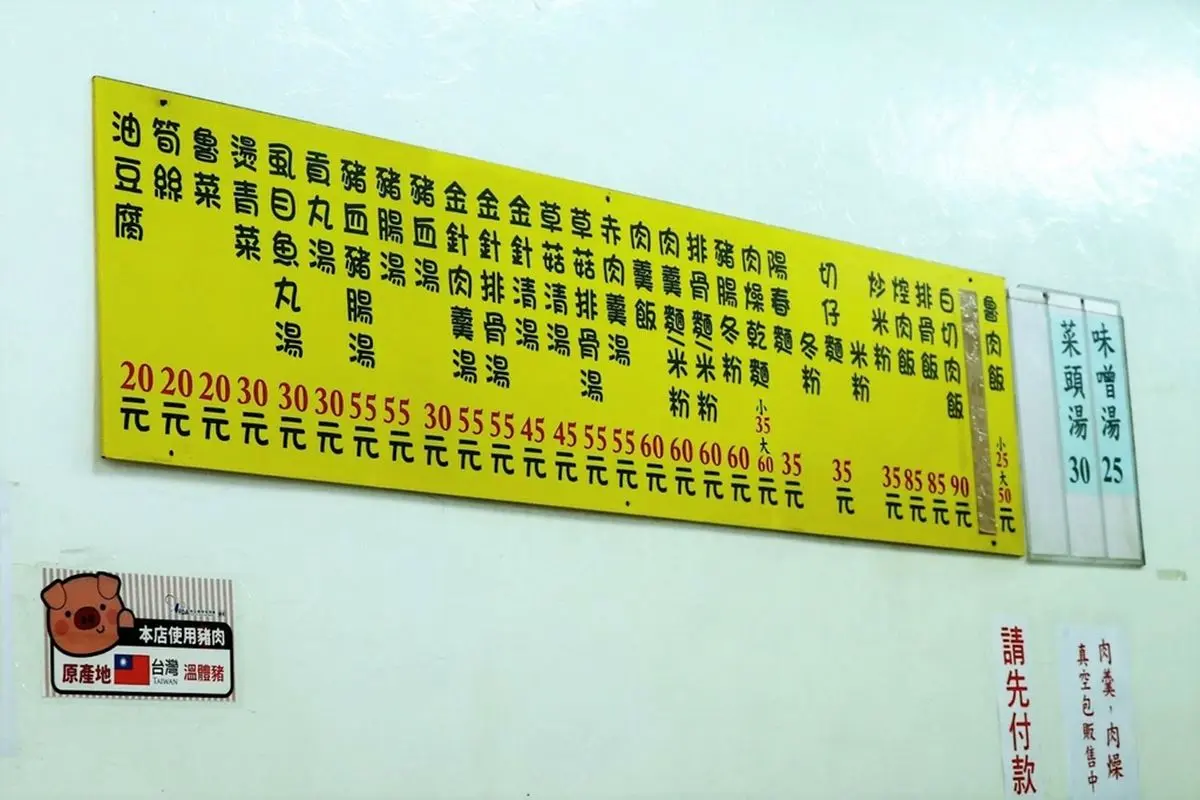 味噌湯 25
菜頭湯 30
魯肉飯 小25大50元
白切肉飯 90元
排骨飯 85元
控肉飯 85元
炒米粉 35元
米粉
切仔麵 35元
冬粉
陽春麵 35元
肉燥乾麵 小35大60元
豬腸冬粉 60元
排骨麵/米粉 60元
肉羹麵/米粉 60元
肉羹飯 60元
赤肉羹湯 55元
草菇排骨湯 55元
草菇清湯 45元
金針清湯 45元
金針排骨湯 55元
金針肉羹湯 55元
豬血湯 30元
豬腸湯 55元
豬血豬腸湯 55元
貢丸湯 30元
虱目魚丸湯 30元
燙青菜 30元
魯菜 20元
筍絲 20元
油豆腐 20元
肉羹，肉燥
真空包販售中
請先付款
本店使用豬肉
原產地 台灣 TAIWAN 溫體豬